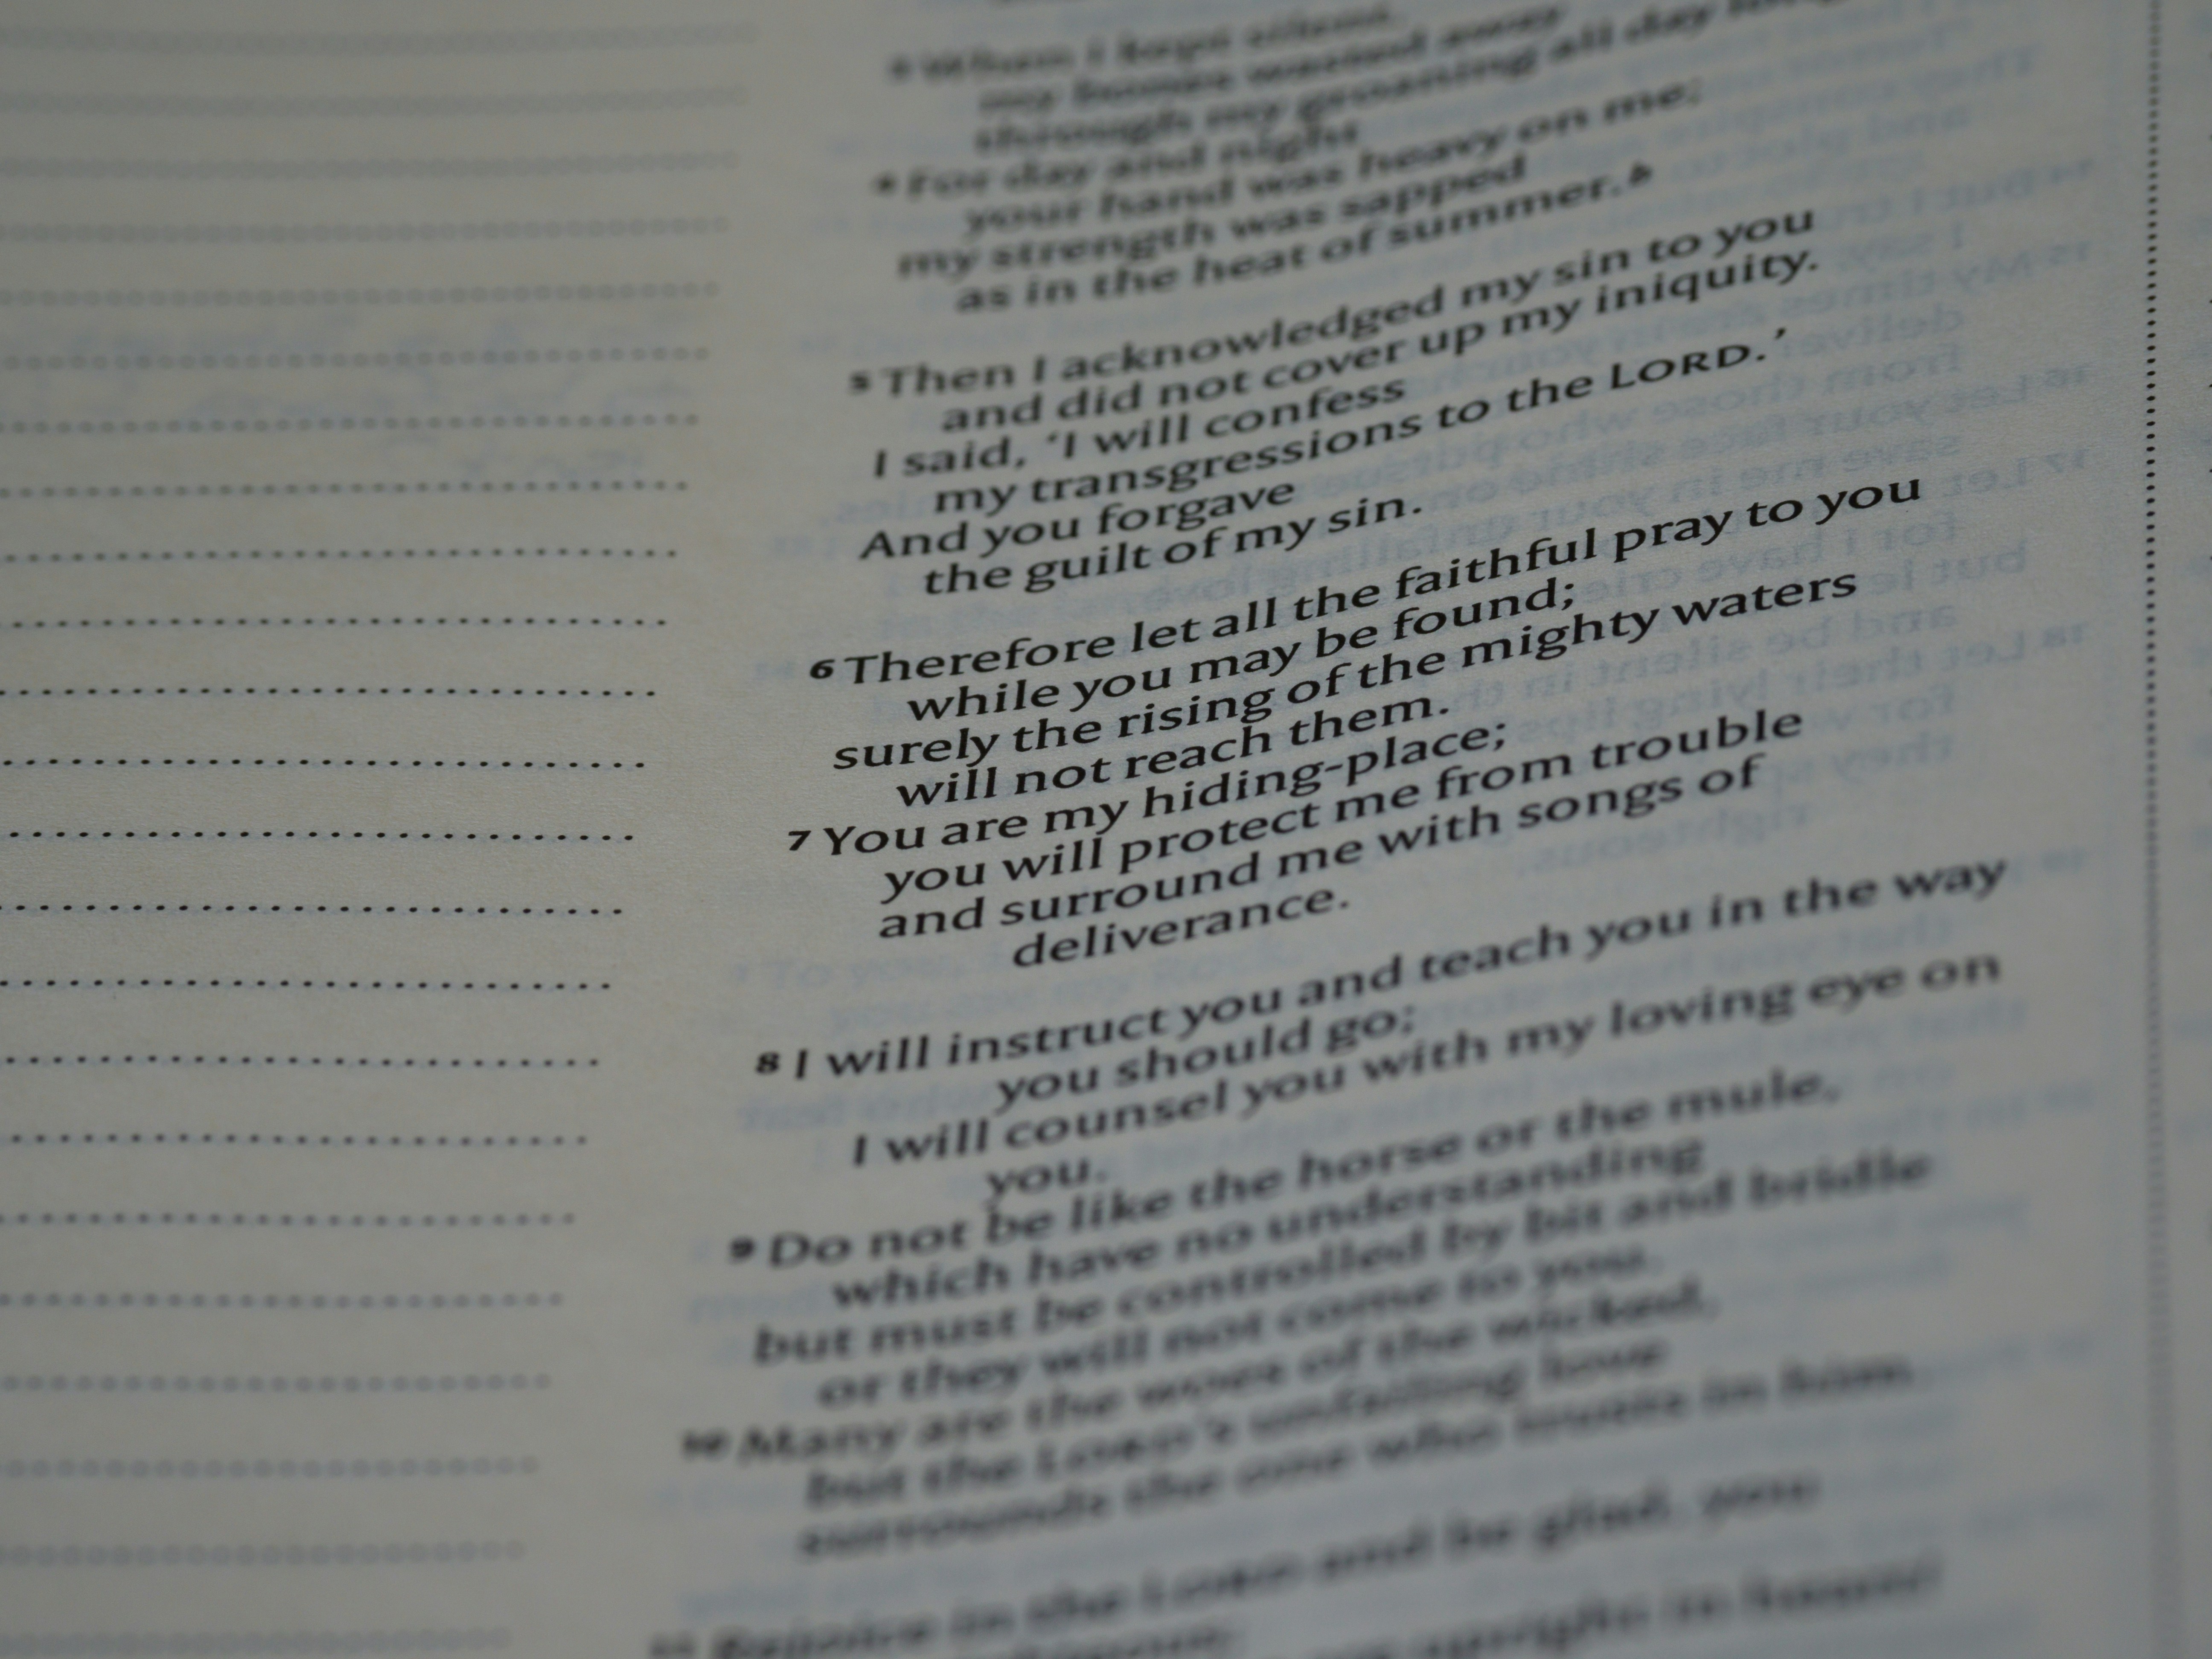 3 When I kept silent,
my bones wasted away
through my groaning all day
4 For day and night
your hand was heavy on me;
my strength was sapped
as in the heat of summer.b
5 Then I acknowledged my sin to you
and did not cover up my iniquity.
I said, ‘I will confess
my transgressions to the LORD.’
And you forgave
the guilt of my sin.
6 Therefore let all the faithful pray to you
while you may be found;
surely the rising of the mighty waters
will not reach them.
7 You are my hiding-place;
you will protect me from trouble
and surround me with songs of
deliverance.
8 I will instruct you and teach you in the way
you should go;
I will counsel you with my loving eye on
you.
9 Do not be like the horse or the mule,
which have no understanding
but must be controlled by bit and bridle
or they will not come to you.
10 Many are the woes of the wicked,
but the LORD’s unfailing love
surrounds the one who trusts in him.
11 Rejoice in the LORD and be glad, you
upright in heart!